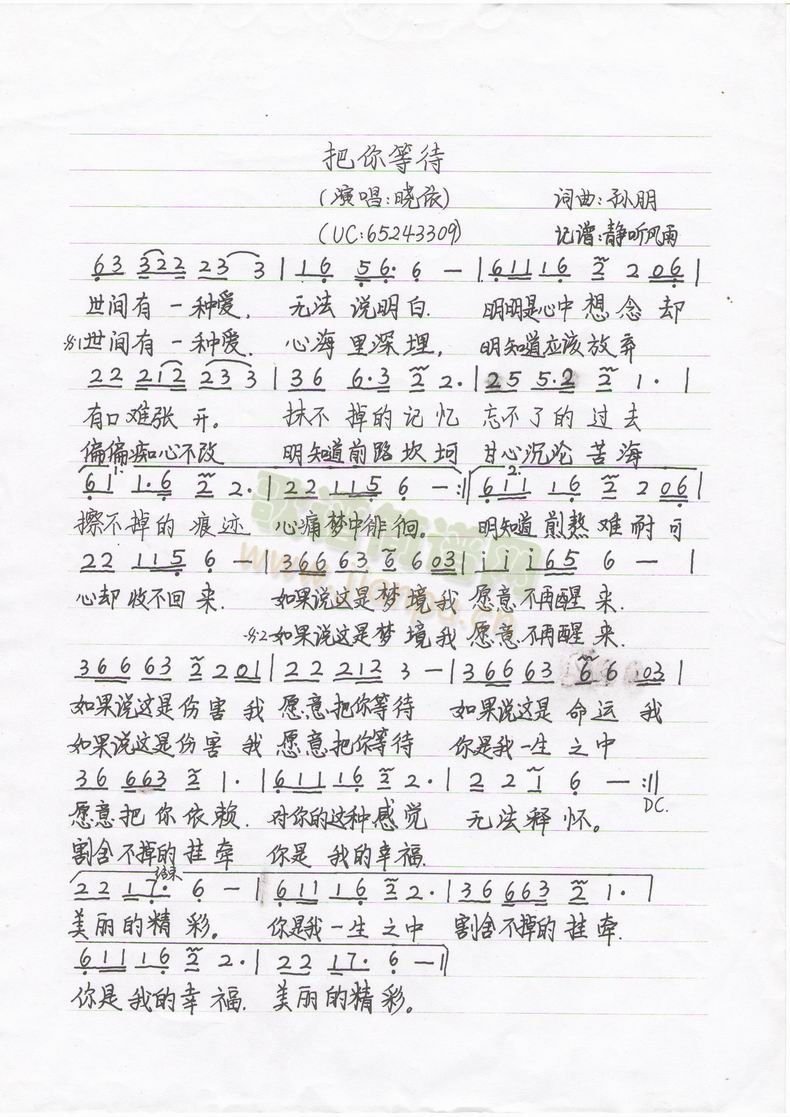 把你等待
(演唱:晓依) 词曲:孙朋
(UC:65243309) 记谱:静听风雨
63 322 23 3 | 16 56· 6 — | 61116 2 2 06 |
世间有一种爱. 无法说明白. 明明是心中想念却
世间有一种爱. 心海里深埋, 明知道应该放弃
22 212 23 3 | 36 6·3 2 2· | 25 5·2 2 1· |
有口难张开。 抹不掉的记忆 忘不了的过去
偏偏痴心不改 明知道前路坎坷 甘心沉沦苦海
1.
2.
61 1·6 2 2· | 22 115 6 — :|| 611 16 2 2 06 |
擦不掉的痕迹 心痛梦中徘徊。 明知道煎熬难耐可
22 115 6 — | 366 63 6 6 03 | i i i 65 6 — |
心却收不回来. 如果说这是梦境我愿意不再醒来.
如果说这是梦境我愿意不再醒来.
366 63 2 2 01 | 22 212 3 — | 366 63 6 6 03 |
如果说这是伤害我愿意把你等待 如果说这是命运我
如果说这是伤害我愿意把你等待 你是我一生之中
36 663 2 1· | 611 16 2 2· | 2 2 1 6 — :||
DC.
愿意把你依赖. 对你的这种感觉 无法释怀。
割舍不掉的挂牵 你是我的幸福.
结束
22 17· 6 — | 611 16 2 2· | 36 663 2 1· |
美丽的精彩。 你是我一生之中 割舍不掉的挂牵.
611 16 2 2· | 22 17· 6 — ||
你是我的幸福. 美丽的精彩。
歌谱简谱网
www.jianpu.cn